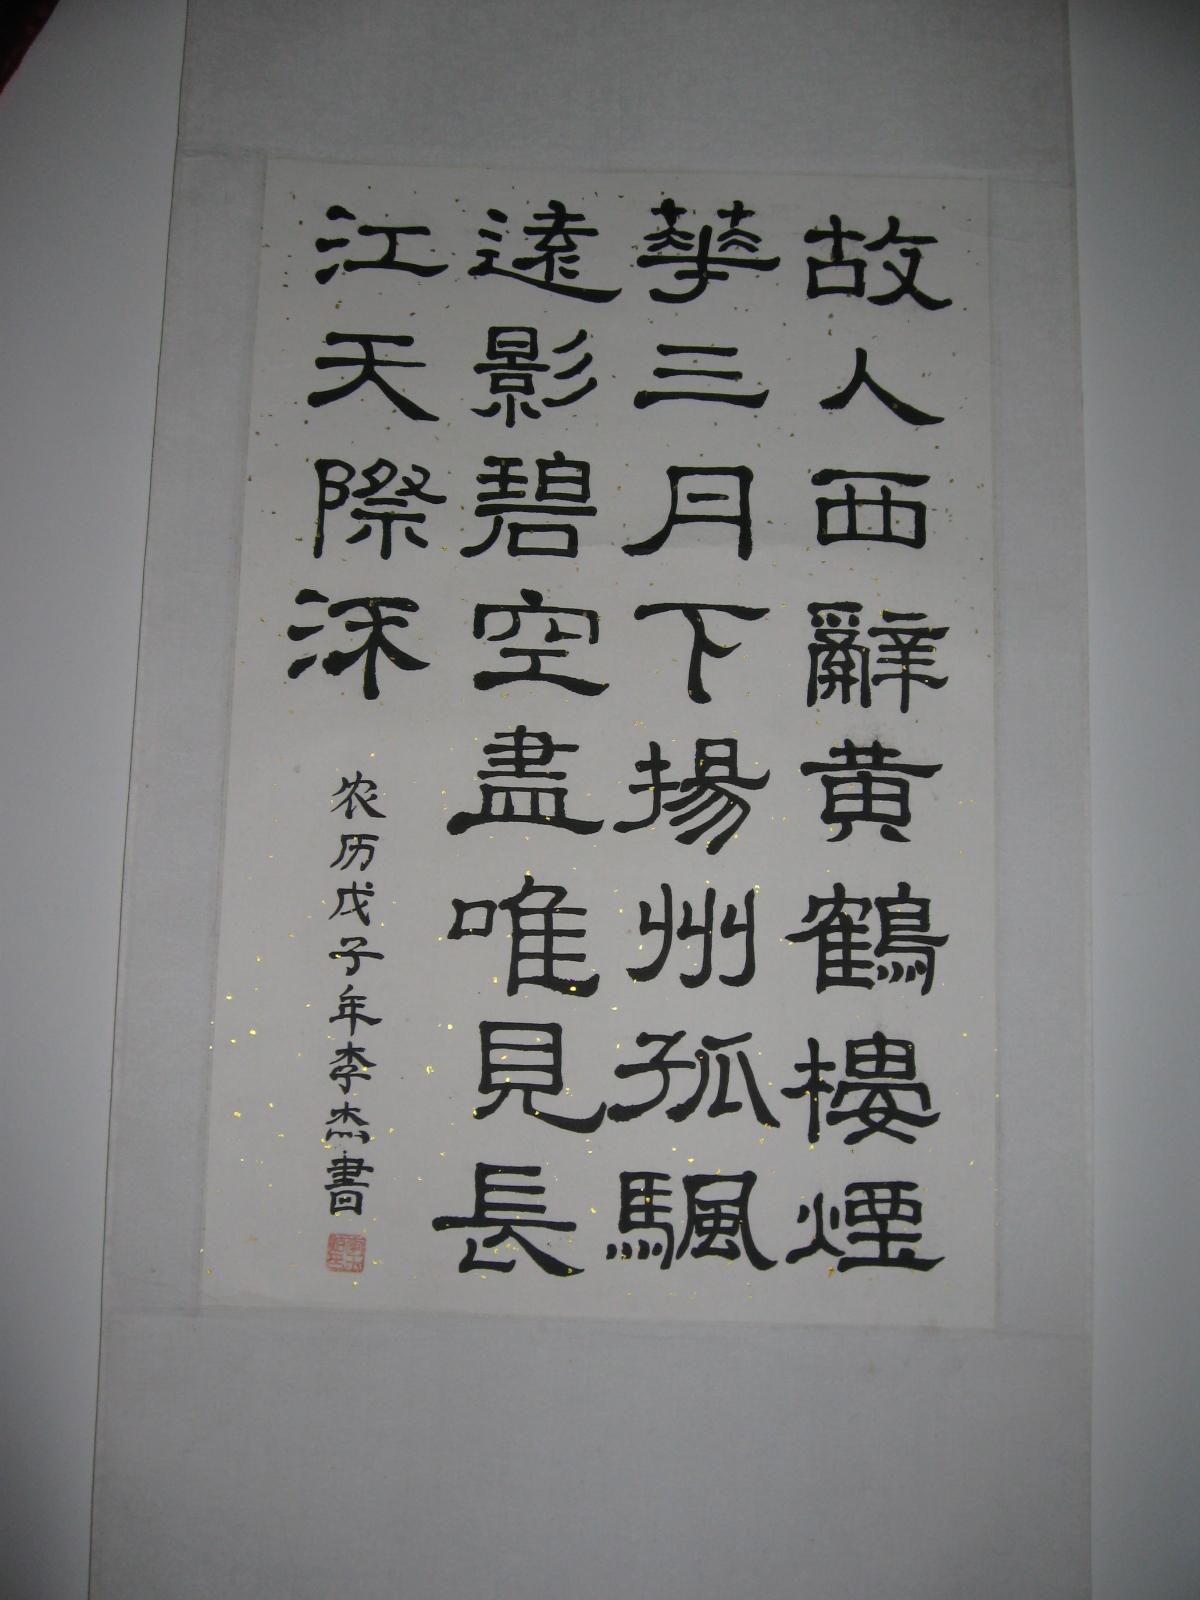 故人西辭黄鶴樓煙
華三月下揚州孤颿
遠影碧空盡唯見長
江天際流
农历戊子年李杰書